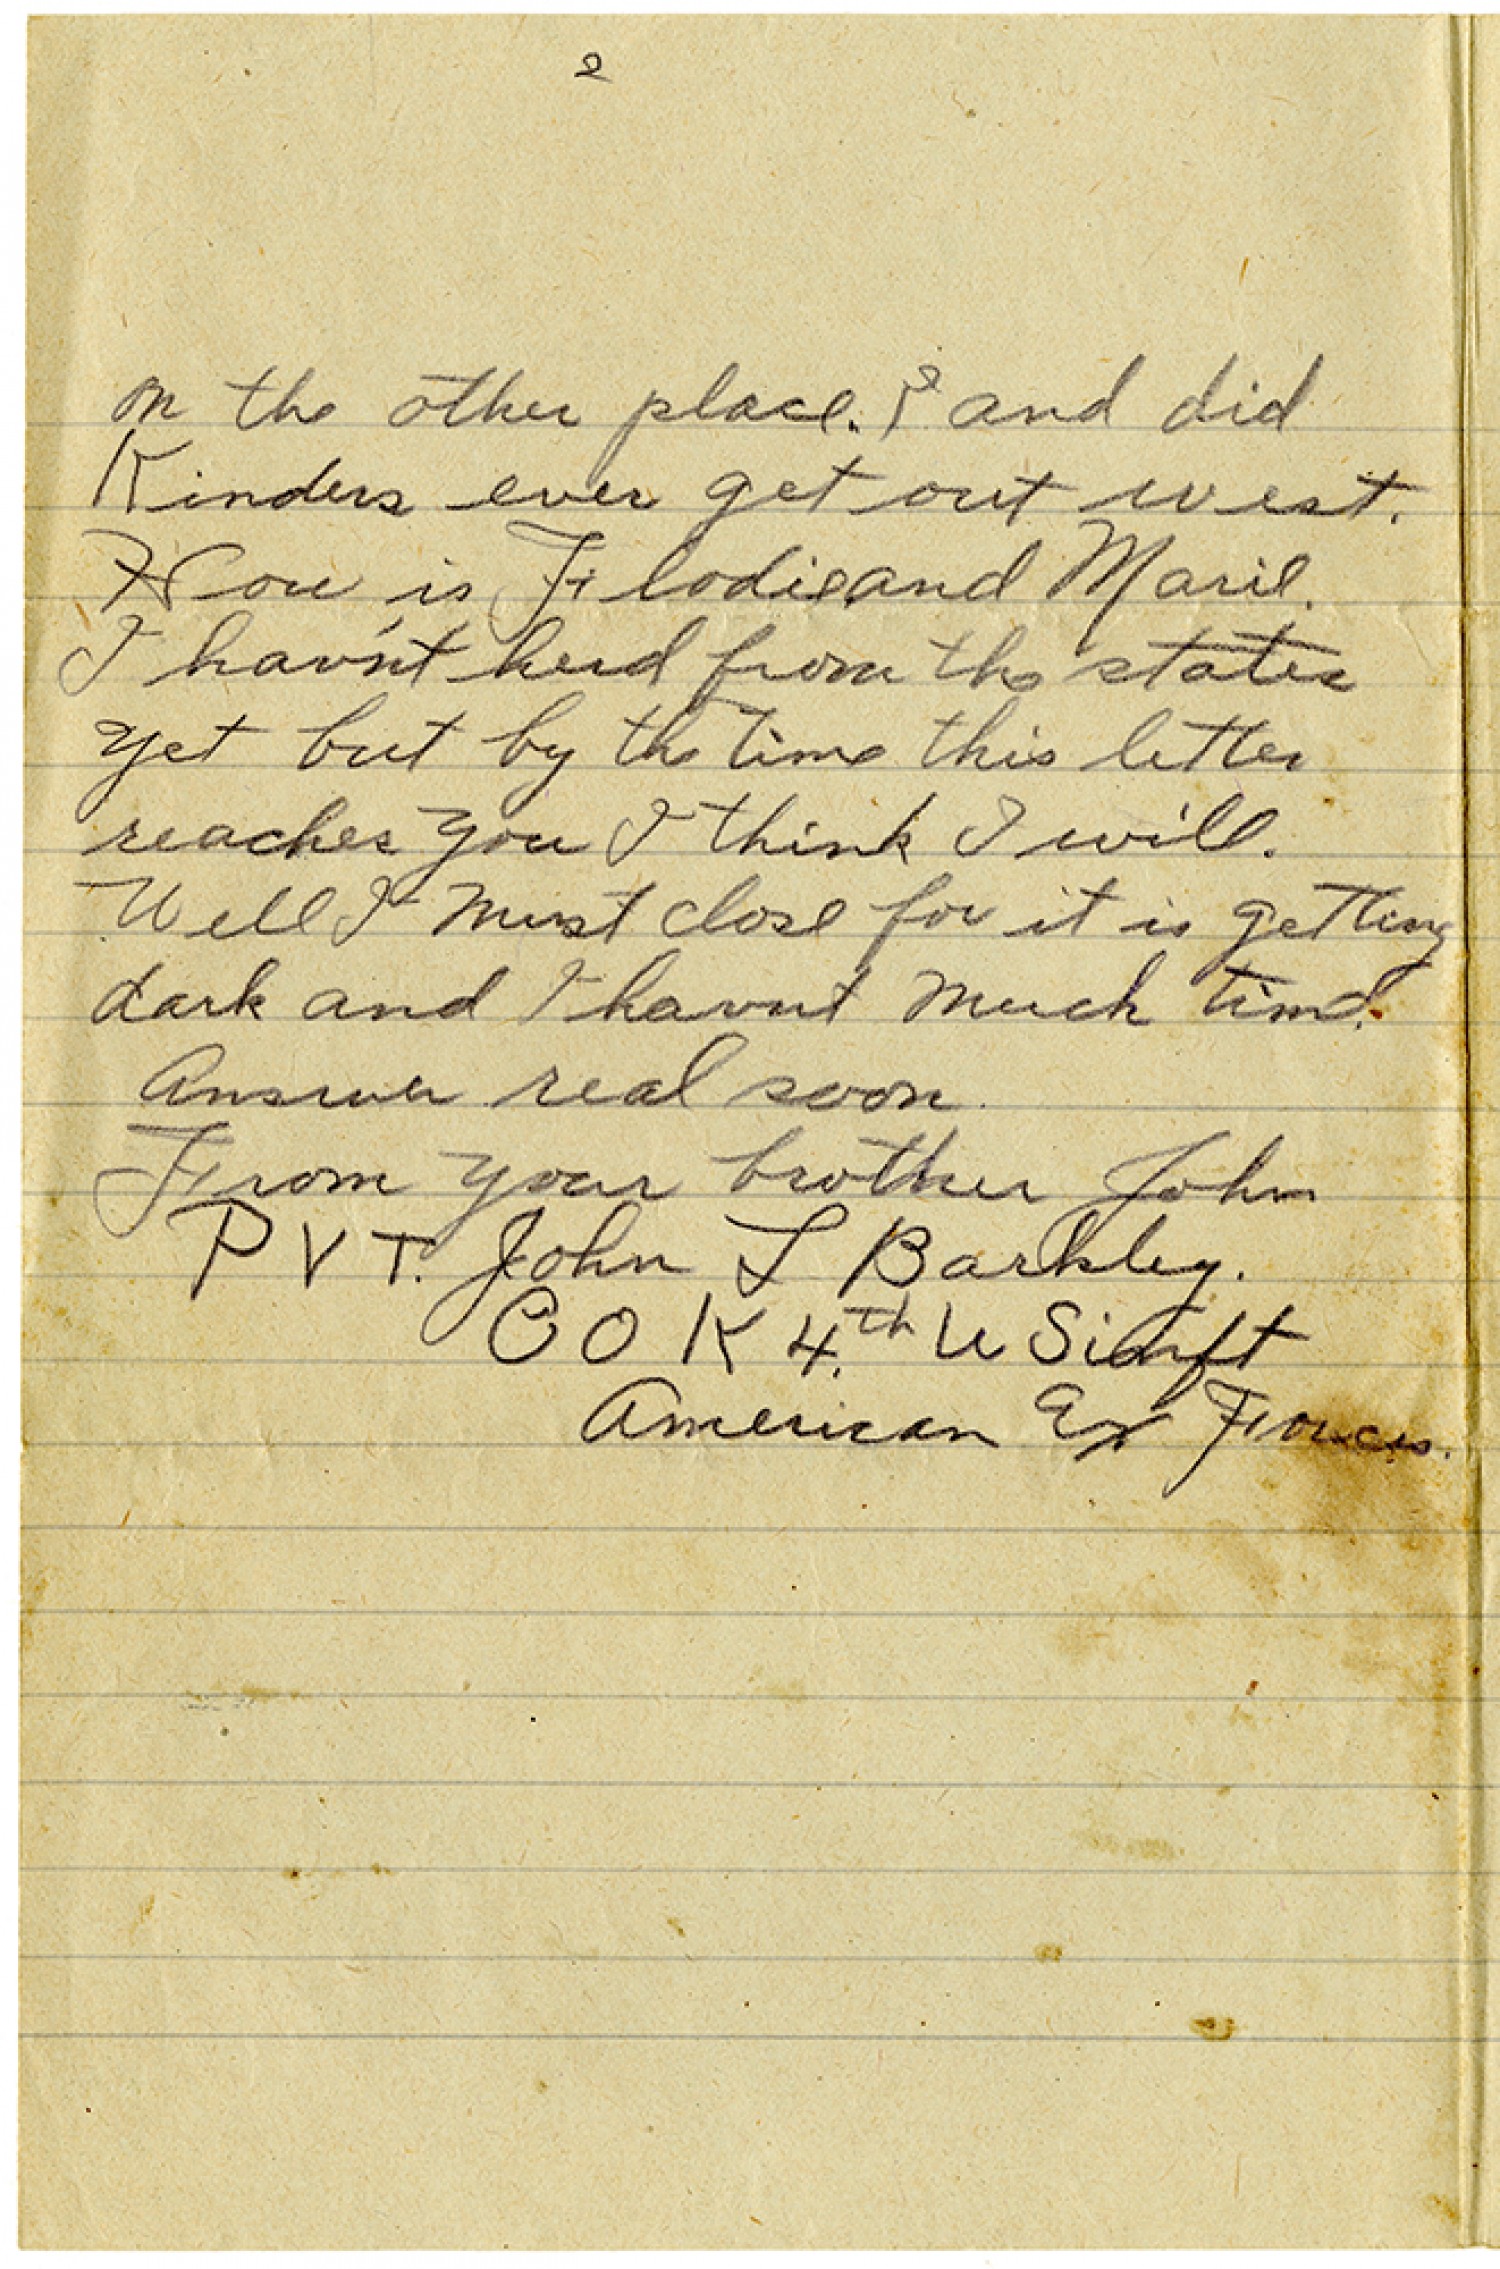 2
on the other place. ? and did
Kinders ever get out west.
How is Flodie and Marie.
I hav'nt herd from the states
yet but by the time this letter
reaches you I think I will.
Well I must close for it is getting
dark and I havnt much time.
Answer real soon.
From your brother John
PVT. John L Barkley.
CO K 4.th U S inft
American Ex Forces.